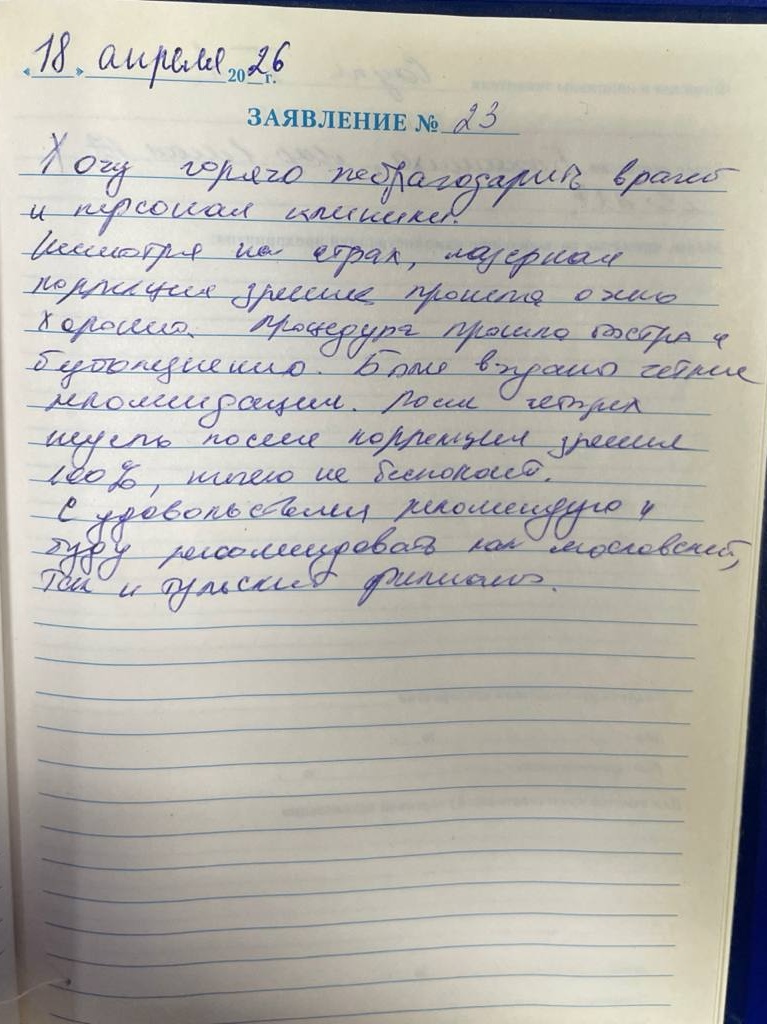 « 18 » апреля 2026 г.
ЗАЯВЛЕНИЕ № 23
Хочу горячо поблагодарить врачей
и персонал клиники.
Несмотря на страх, лазерная
коррекция зрения прошла очень
хорошо. Процедура прошла быстро и
безболезненно. Были выданы четкие
рекомендации. После четырех
недель после коррекции зрение
100%, ничего не беспокоит.
С удовольствием рекомендую и
буду рекомендовать как московский,
так и тульский филиалы.